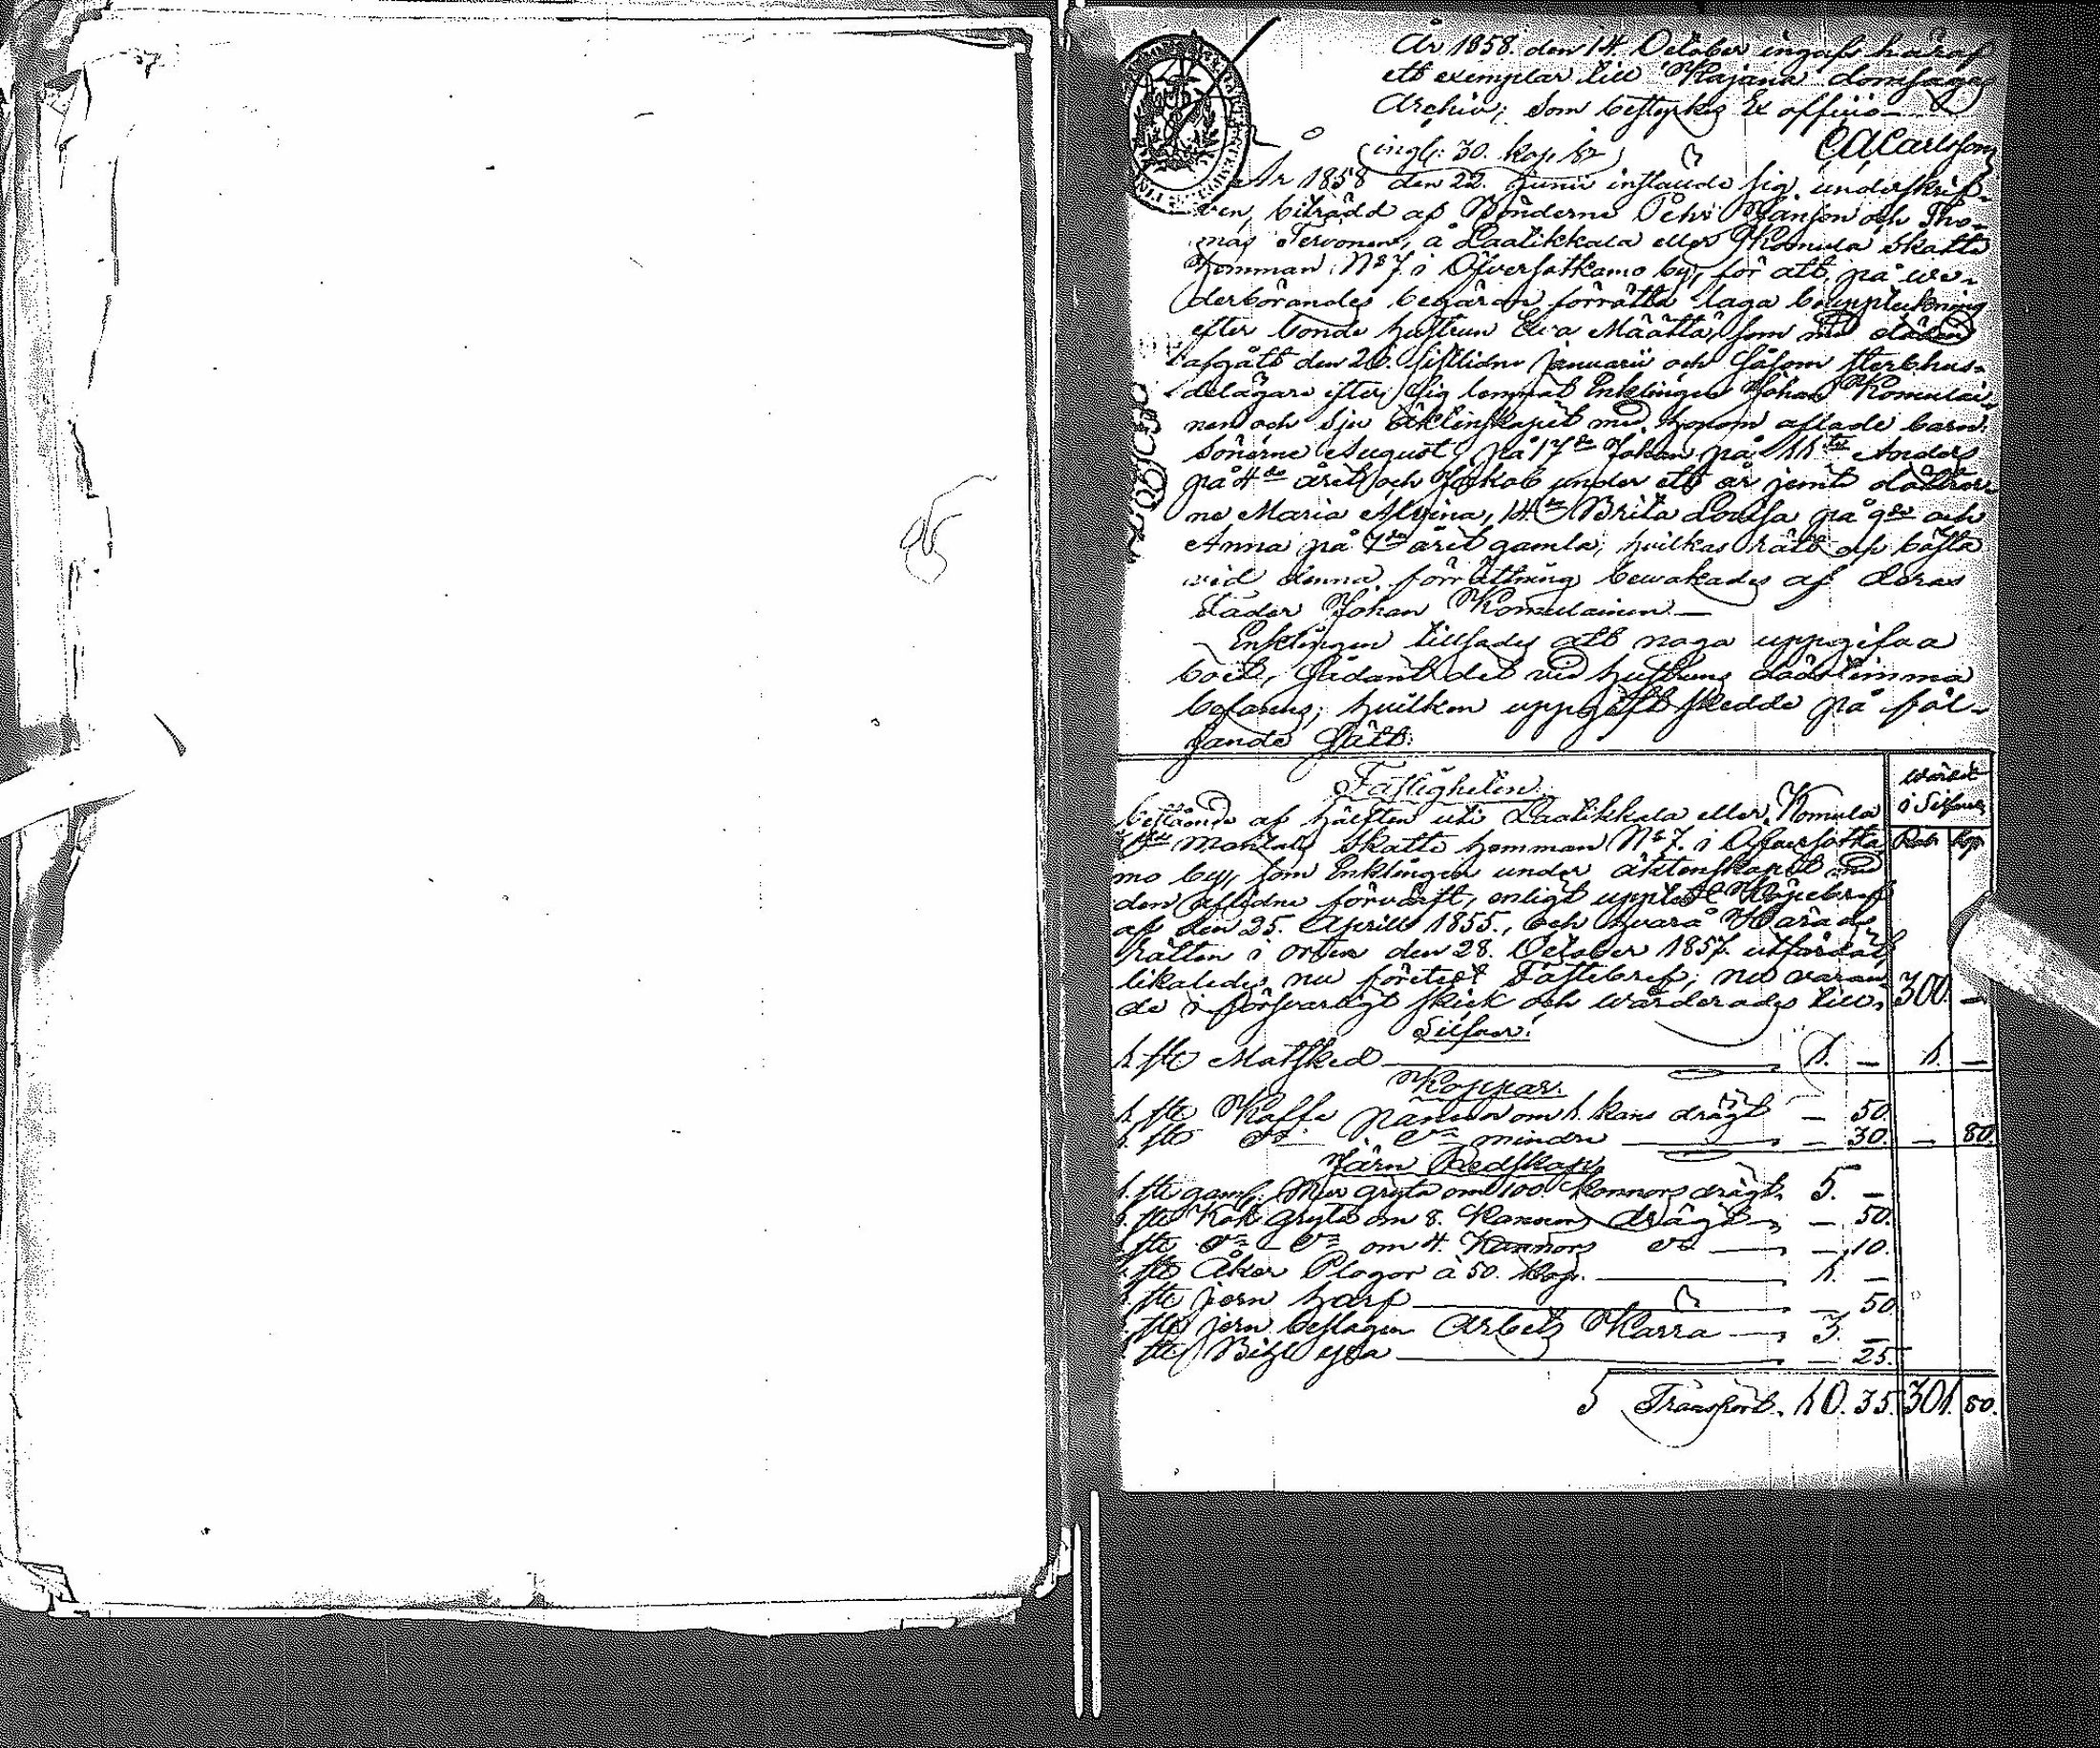 År 1858. den 14. October ingafs häraf
ett exemplar till Kajana domsagas
Archiv; som bestyrkes Ex officio
CACarlsson
ingf: 30. kop. Sr
År 1858 den 22. Junii inställde sig underskrif-
ven, biträdd af Bönderne Pehr och Tho-
mas Tervonen, å Laatikkala eller Komula Skatte
hemman No 7. i Öfversotkamo by, för att, på we-
derbörandes begäran förrätta laga bouppteckning
efter bonde hustrun Eva Määttä, som med döden
afgått den 26. sistlidne Januarii och såsom sterbhus-
delägare efter sig lemnat Enklingen Johan Komulai-
nen och sju i äktenskapet med honom aflade barn:
Sönerne August på 17de Johan på 11te Anders
på 4de året och Jakob under ett år jemte döttrar-
ne Maria Alvina, 14de Brita Lovisa på 9de och
Anna på 7de året gamla, hvilkas rätt och bästa
vid denna förrättning bewakades af deras
Fader Johan Komulainen
Enklingen tillsades att noga uppgifva
boet, sådant det vid hustruns dödstimma
befanns, hvilken uppgift skedde på föl-
jande sätt:
Fastigheten
wärde
i Silfver
Rub. kop.
bestående af hälften uti Laatikkala eller Komula
Mantals Skatte hemman No 7. i Öfversotka-
mo by, som Enklingen under äktenskapet med
den aflidne förvärft, enligt upptedt Köpebref
af den 25. Aprill 1855., och hvarå Härads
Rätten i orten den 28. October 1857. utfärdat
likaledes nu företedt Fastebref; nu varan-
de i försvarligt skick och wärderades till 300. —
Silfver:
1. st. Matsked 1. — 1. —
Koppar.
1. st. Kaffe Panna om 1. kans drägt — 50.
1. st. do do mindre — 30. — 80.
Järn Redskap
1. st. gaml. Mur gryta om 100. Kannors drägt 5. —
st. Kok gryta om 8. Kannors drägt — 50.
st. do do om 4. Kannors do — 10.
st. Åker Plogar à 50. kop. 1. —
st. jern harf — 50.
st. jern beslagen Arbets Kärra 3. —
st. — 25.
Transport. 10. 35. 301. 80.